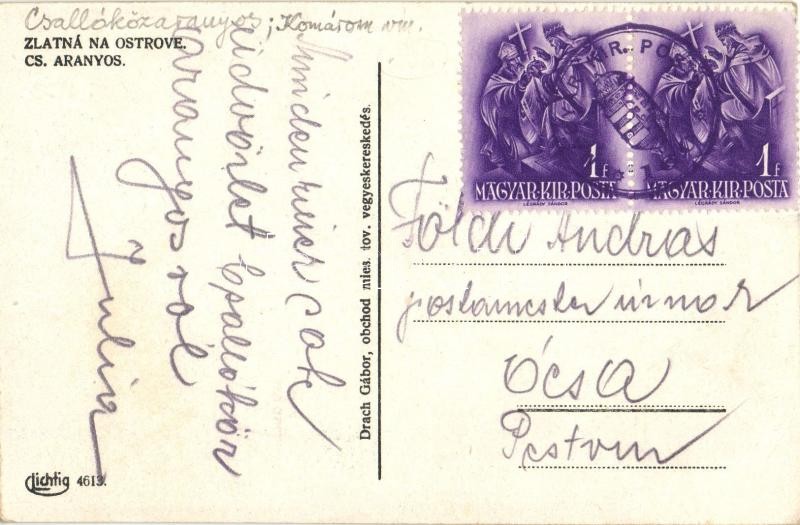 Csallóközaranyos; Komárom vm.
ZLATNÁ NA OSTROVE.
CS. ARANYOS.
Mindenkinek sok
üdvözlet Csallóköz
aranyosról
Julia
Drach Gábor, obchod mies. tov. vegyeskereskedés.
Lichtig 4613.
1f
MAGYAR·KIR·POSTA
LÉGRÁDY SÁNDOR
1f
MAGYAR·KIR·POSTA
LÉGRÁDY SÁNDOR
Földi András
postamester úrnak
Ócsa
Pestvm